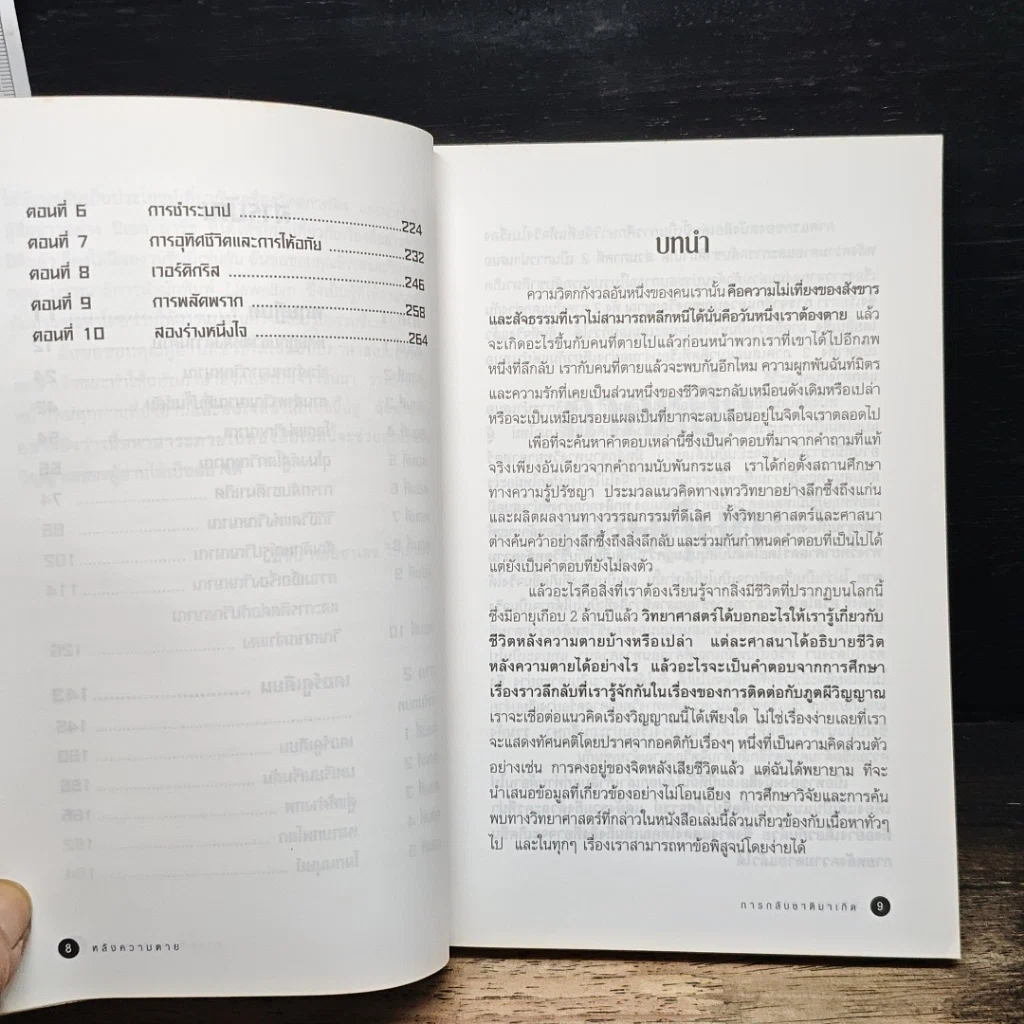 ตอนที่ 6 การชำระบาป ........................................224
ตอนที่ 7 การอุทิศชีวิตและการให้อภัย ....................232
ตอนที่ 8 เวอร์ดิกริส ........................................246
ตอนที่ 9 การพลัดพราก ........................................258
ตอนที่ 10 สองร่างหนึ่งใจ ........................................264
8 หลังความตาย
บทนำ
ความวิตกกังวลอันหนึ่งของคนเรานั้น คือความไม่เที่ยงของสังขาร
และสัจธรรมที่เราไม่สามารถหลีกหนีได้นั่นคือวันหนึ่งเราต้องตาย แล้ว
จะเกิดอะไรขึ้นกับคนที่ตายไปแล้วก่อนหน้าพวกเราที่เขาได้ไปอีกภพ
หนึ่งที่ลึกลับ เรากับคนที่ตายแล้วจะพบกันอีกไหม ความผูกพันฉันท์มิตร
และความรักที่เคยเป็นส่วนหนึ่งของชีวิตจะกลับเหมือนดังเดิมหรือเปล่า
หรือจะเป็นเหมือนรอยแผลเป็นที่ยากจะลบเลือนอยู่ในจิตใจเราตลอดไป
เพื่อที่จะค้นหาคำตอบเหล่านี้ซึ่งเป็นคำตอบที่มาจากคำถามที่แท้
จริงเพียงอันเดียวจากคำถามนับพันกระแส เราได้ก่อตั้งสถานศึกษา
ทางความรู้ปรัชญา ประมวลแนวคิดทางเทววิทยาอย่างลึกซึ้งถึงแก่น
และผลิตผลงานทางวรรณกรรมที่ดีเลิศ ทั้งวิทยาศาสตร์และศาสนา
ต่างค้นคว้าอย่างลึกซึ้งถึงสิ่งลึกลับ และร่วมกันกำหนดคำตอบที่เป็นไปได้
แต่ยังเป็นคำตอบที่ยังไม่ลงตัว
แล้วอะไรคือสิ่งที่เราต้องเรียนรู้จากสิ่งมีชีวิตที่ปรากฏบนโลกนี้
ซึ่งมีอายุเกือบ 2 ล้านปีแล้ว วิทยาศาสตร์ได้บอกอะไรให้เรารู้เกี่ยวกับ
ชีวิตหลังความตายบ้างหรือเปล่า แต่ละศาสนาได้อธิบายชีวิต
หลังความตายได้อย่างไร แล้วอะไรจะเป็นคำตอบจากการศึกษา
เรื่องราวลึกลับที่เรารู้จักกันในเรื่องของการติดต่อกับภูตผีวิญญาณ
เราจะเชื่อต่อแนวคิดเรื่องวิญญาณนี้ได้เพียงใด ไม่ใช่เรื่องง่ายเลยที่เรา
จะแสดงทัศนคติโดยปราศจากอคติกับเรื่องๆ หนึ่งที่เป็นความคิดส่วนตัว
อย่างเช่น การคงอยู่ของจิตหลังเสียชีวิตแล้ว แต่ฉันได้พยายาม ที่จะ
นำเสนอข้อมูลที่เกี่ยวข้องอย่างไม่โอนเอียง การศึกษาวิจัยและการค้น
พบทางวิทยาศาสตร์ที่กล่าวในหนังสือเล่มนี้ล้วนเกี่ยวข้องกับเนื้อหาทั่วๆ
ไป และในทุกๆ เรื่องเราสามารถหาข้อพิสูจน์โดยง่ายได้
การกลับชาติมาเกิด 9